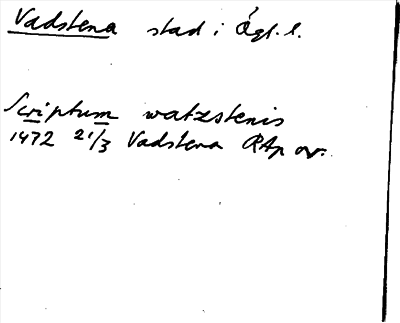 Vadstena stad i Ögl. l.
Scriptum watzstenis
1472 21/3 Vadstena RAp or.